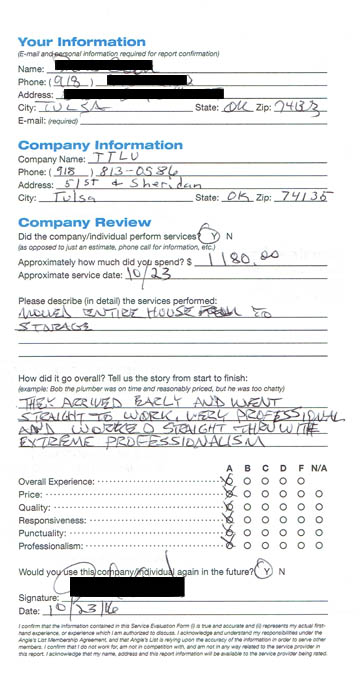 Your Information
(E-mail and personal information required for report confirmation)
Name:
Phone: (918)
Address:
City: TULSA State: OK Zip: 74133
E-mail: (required)
Company Information
Company Name: TTLU
Phone: (918) 813-0586
Address: 51ST & Sheridan
City: Tulsa State: OK Zip: 74135
Company Review
Did the company/individual perform services? Y N
(as opposed to just an estimate, phone call for information, etc.)
Approximately how much did you spend? $ 1180.00
Approximate service date: 10/23
Please describe (in detail) the services performed:
MOVED ENTIRE HOUSE TO
STORAGE
How did it go overall? Tell us the story from start to finish:
(example: Bob the plumber was on time and reasonably priced, but he was too chatty)
THEY ARRIVED EARLY AND WENT
STRAIGHT TO WORK. VERY PROFESSIONAL
AND WORKED STRAIGHT THRU WITH
EXTREME PROFESSIONALISM
A B C D F N/A
Overall Experience:
Price:
Quality:
Responsiveness:
Punctuality:
Professionalism:
Would you use this company/individual again in the future? Y N
Signature:
Date: 10/23/16
I confirm that the information contained in this Service Evaluation Form (i) is true and accurate and (ii) represents my actual first-
hand experience, or experience which I am authorized to discuss. I acknowledge and understand my responsibilities under the
Angie's List Membership Agreement, and that Angie's List is relying upon the accuracy of the information in order to serve other
members. I confirm that I do not work for, am not in competition with, and am not in any way related to the service provider in
this report. I acknowledge that my name, address and this report information will be available to the service provider being rated.